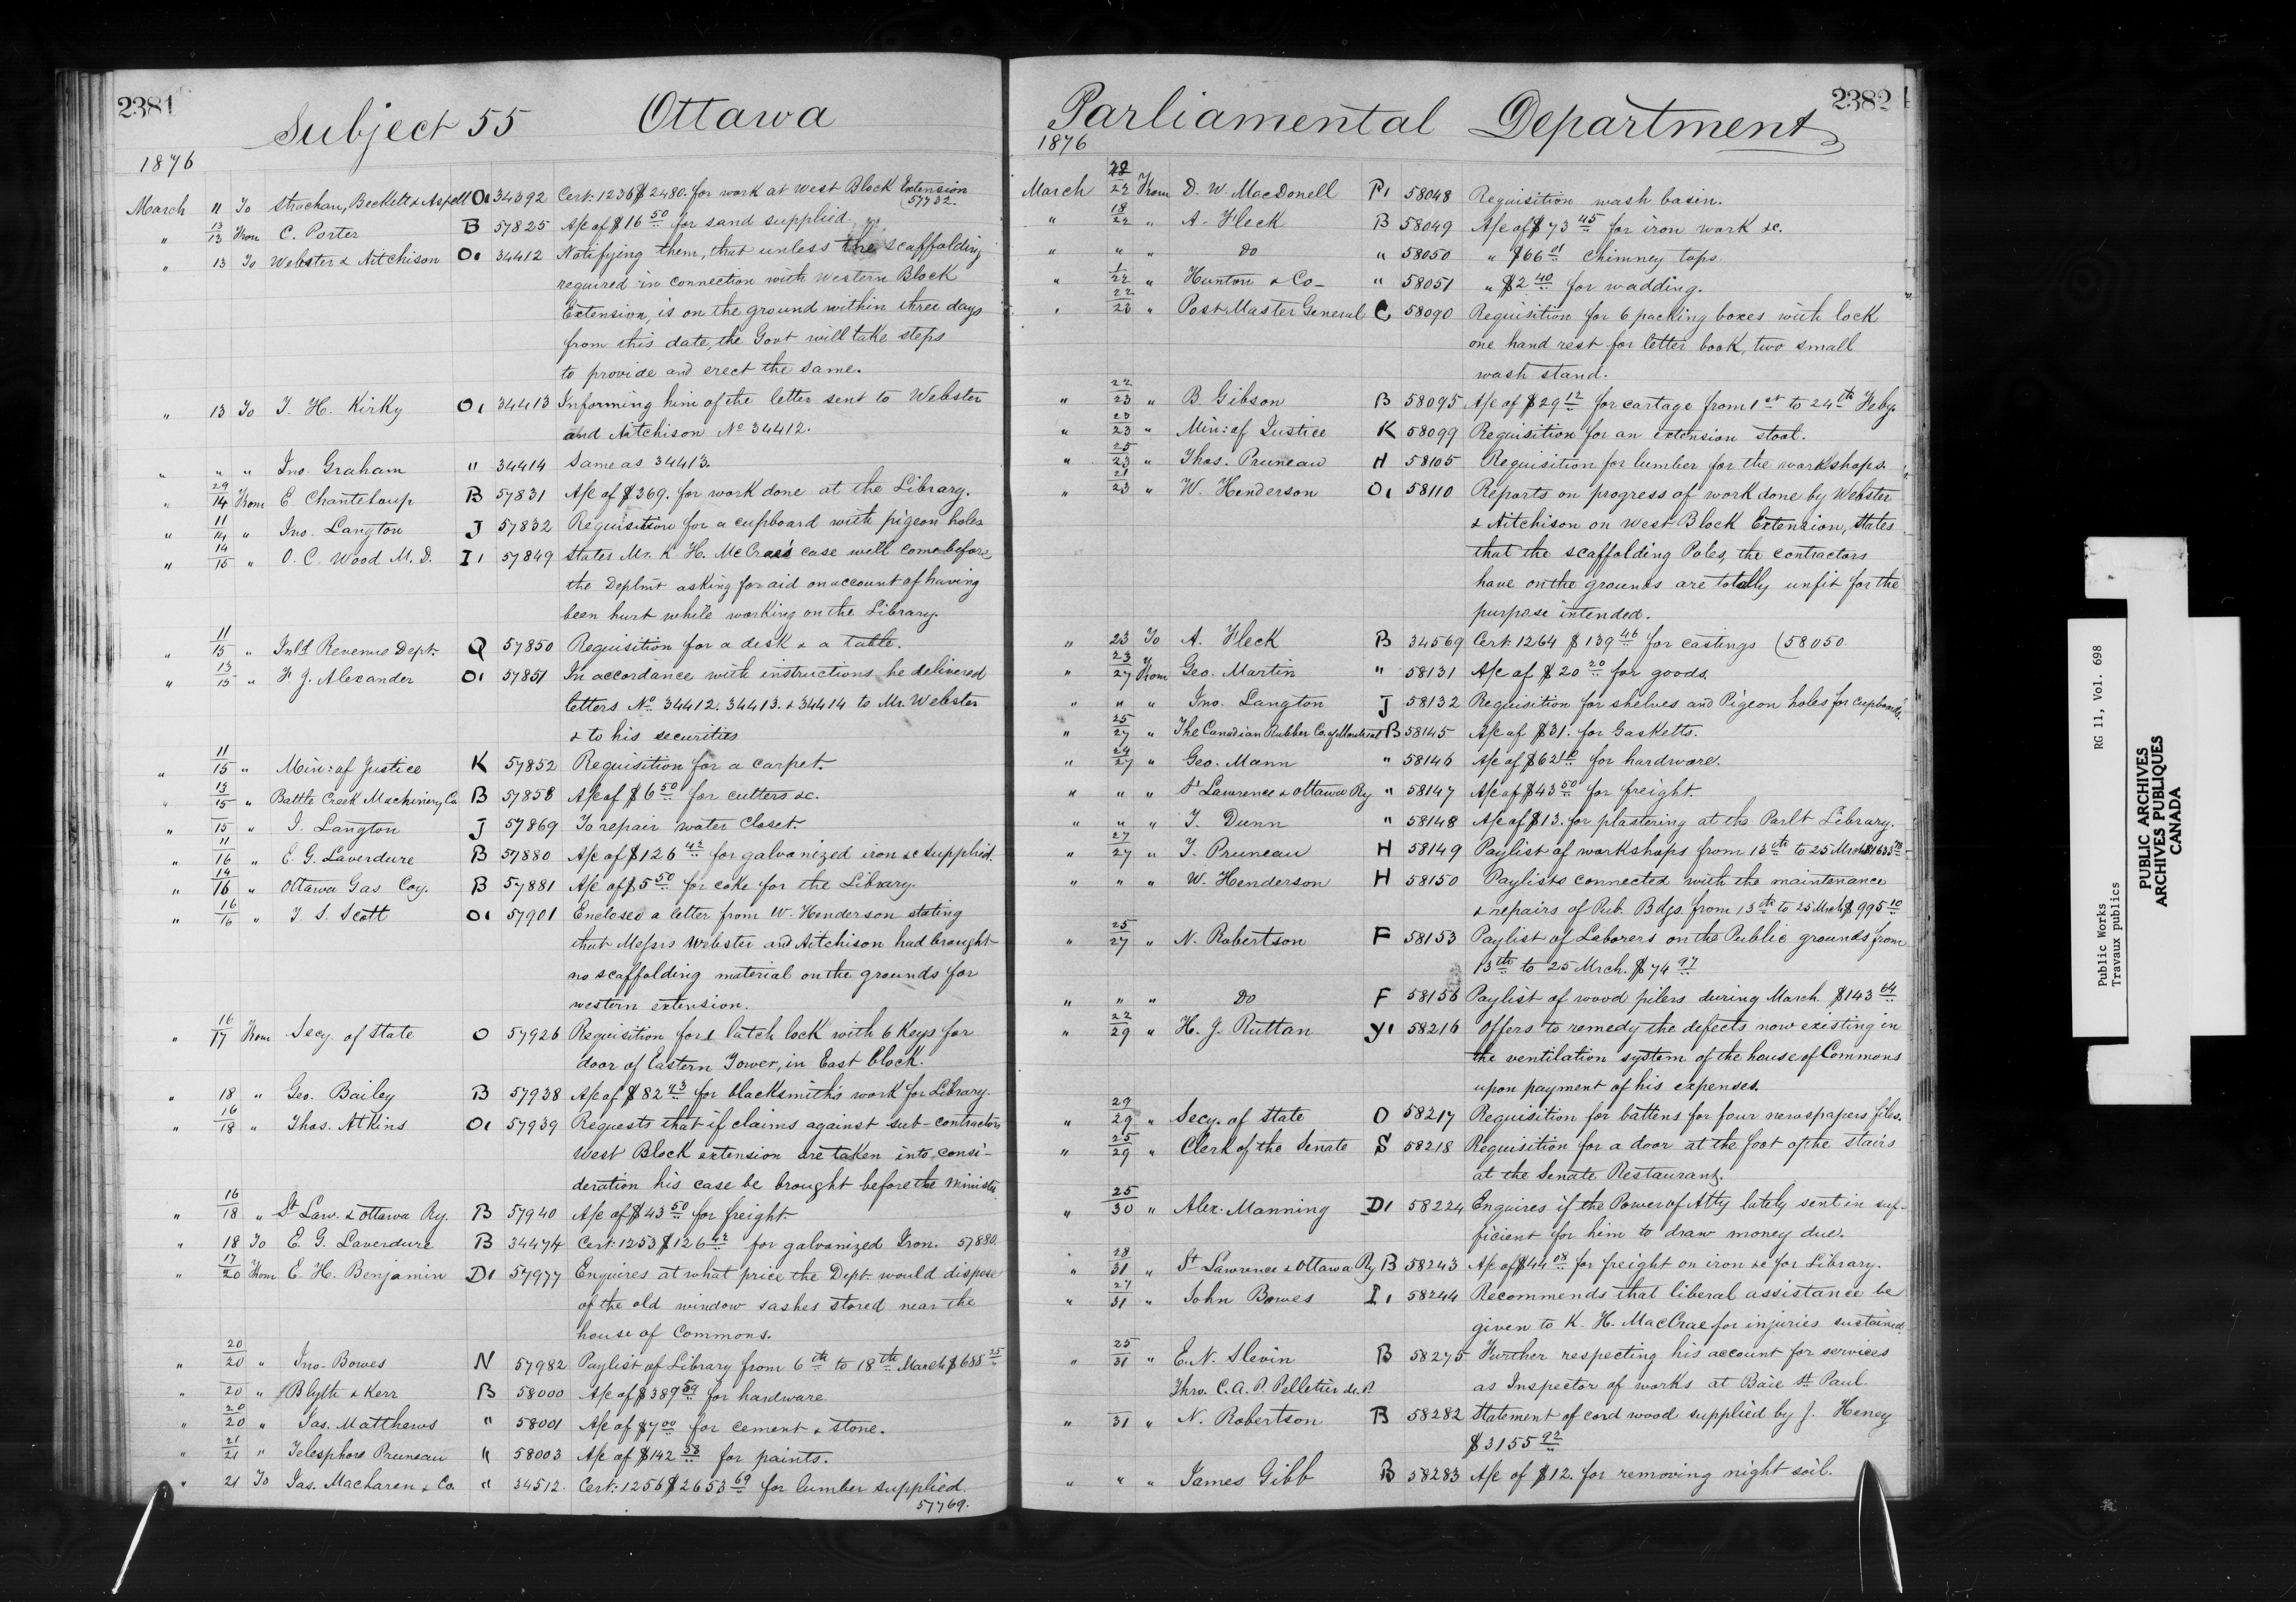 2381
Subject 55 Ottawa
1876
March 11 To Strachan, Beckett & Aspell O1 34392 Cert: 1236 $2480. for work at West Block Extension
57732.
" 13/13 From C. Porter B 57825 A/c of $16 50 for sand supplied
" 13 To Webster & Aitchison O1 34412 Notifying them, that unless the scaffolding
required in connection with Western Block
Extension, is on the ground within three days
from this date, the Govt will take steps
to provide and erect the same.
" 13 To T. H. Kirky O1 34413 Informing him of the letter sent to Webster
and Aitchison No 34412.
" " " Jno. Graham " 34414 Same as 34413.
" 29/14 From E Chanteloup B 57831 A/c of $369. for work done at the Library.
" 11/14 " Jno. Langton J 57832 Requisition for a cupboard with pigeon holes
" 14/15 " O. C. Wood M.D. I1 57849 States Mr. K. H. McCrae's case will come before
the Deptmt asking for aid on account of having
been hurt while working on the Library.
" 11/15 " Inld Revenue Dept. Q 57850 Requisition for a desk & a table.
" 13/15 " F. J. Alexander O1 57851 In accordance with instructions he delivered
letters No 34412. 34413. & 34414 to Mr. Webster
& to his securities
" 11/15 " Min: of Justice K 57852 Requisition for a carpet.
" 13/15 " Battle Creek Machinery Co B 57858 A/c of $6 50 for cutters &c.
" 15 " J. Langton J 57869 To repair water closet.
" 11/16 " E. G. Laverdure B 57880 A/c of $126 42 for galvanized iron &c supplied.
" 14/16 " Ottawa Gas Coy. B 57881 A/c of $5 50 for coke for the Library.
" 16/16 " T. S. Scott O1 57901 Enclosed a letter from W. Henderson stating
that Messrs Webster and Aitchison had brought
no scaffolding material on the grounds for
western extension.
" 16/17 From Secy. of State O 57926 Requisition for 1 latch lock with 6 Keys for
door of Eastern Tower, in East block.
" 18 " Geo. Bailey B 57938 A/c of $82 43 for blacksmith's work for Library.
" 16/18 " Thos. Atkins O1 57939 Requests that if claims against sub-contractors
West Block extension are taken into consi-
deration his case be brought before the Minister
" 16/18 " St Law. & Ottawa Ry. B 57940 A/c of $43 50 for freight.
" 18 To E. G. Laverdure B 34474 Cert: 1253 $126 42 for galvanized Iron. 57880.
" 17/20 From E. H. Benjamin D1 57977 Enquires at what price the Dept would dispose
of the old window sashes stored near the
house of Commons.
" 20/20 " Jno. Bowes N 57982 Paylist of Library from 6th to 18th March $685 25
" 20 " Blyth & Kerr B 58000 A/c of $389 59 for hardware
" 20/20 " Jas. Matthews " 58001 A/c of $7 00 for cement & stone.
" 21/21 " Telesphore Pruneau " 58003 A/c of $142 58 for paints.
" 21 To Jas. Maclaren & Co. " 34512. Cert: 1256 $2653 69 for lumber supplied.
57769.
2382
Parliamental Department
1876
March 22 From D. W. MacDonell P1 58048 Requisition wash basin.
" 18/22 " A. Fleck B 58049 A/c of $73 45 for iron work &c.
" " " Do " 58050 " $66 01 Chimney tops.
" 1/22 " Hunton & Co " 58051 " $2 40 for wadding.
" 22/23 " Post Master General C 58090 Requisition for 6 packing boxes with lock
one hand rest for letter book, two small
wash stand.
" 22/23 " B Gibson B 58095 A/c of $29 12 for cartage from 1st to 24th Feby.
" 23/23 " Min: of Justice K 58099 Requisition for an extension stool.
" 23/23 " Thos. Pruneau H 58105 Requisition for lumber for the workshops.
" 21/23 " W. Henderson O1 58110 Reports on progress of work done by Webster
& Aitchison on West Block Extension, States
that the scaffolding Poles, the contractors
have on the grounds are totally unfit for the
purpose intended.
" 23 To A. Fleck B 34569 Cert: 1264 $139 46 for castings (58050
" 23/27 From Geo. Martin " 58131 A/c of $20 20 for goods.
" " " Jno. Langton J 58132 Requisition for shelves and Pigeon holes for cupboards.
" 25/27 " The Canadian Rubber Co. of Montreal B 58145 A/c of $31. for Gasketts.
" 24/27 " Geo. Mann " 58146 A/c of $62 10 for hardware.
" " " St Lawrence & Ottawa Ry " 58147 A/c of $43 50 for freight.
" " " T. Dunn " 58148 A/c of $13. for plastering at the Parlt Library.
" 27/27 " T. Pruneau H 58149 Paylist of workshops from 13th to 25 Mrch
" " " W. Henderson H 58150 Paylists connected with the maintenance
& repairs of Pub. Bdgs. from 13th to 25 Mrch $995 10
" 25/27 " N. Robertson F 58153 Paylist of Laborers on the Public grounds from
13th to 25 Mrch. $74 97
" " " Do F 58156 Paylist of wood pilers during March $143 64
" 22/29 " H. J. Ruttan Y1 58216 Offers to remedy the defects now existing in
the ventilation system of the house of Commons
upon payment of his expenses.
" 29/29 " Secy. of State O 58217 Requisition for battens for four newspapers files.
" 25/29 " Clerk of the Senate S 58218 Requisition for a door at the foot of the stairs
at the Senate Restaurant.
" 25/30 " Alex. Manning D1 58224 Enquires if the Power of Atty lately sent in suf-
ficient for him to draw money due.
" 28/31 " St Lawrence & Ottawa Ry B 58243 A/c of $44 08 for freight on iron &c for Library.
" 27/31 " John Bowes I1 58244 Recommends that liberal assistance be
given to K. H. MacCrae for injuries sustained.
" 25/31 " E. N. Slevin B 58275 Further respecting his account for services
Thro. C. A. P. Pelletier M.P. as Inspector of works at Baie St Paul.
" 31 " N. Robertson B 58282 Statement of cord wood supplied by J. Heney
$3155 92
" " " James Gibb B 58283 A/c of $12. for removing night soil.
Public Works RG 11, Vol. 698
Travaux publics
PUBLIC ARCHIVES
ARCHIVES PUBLIQUES
CANADA